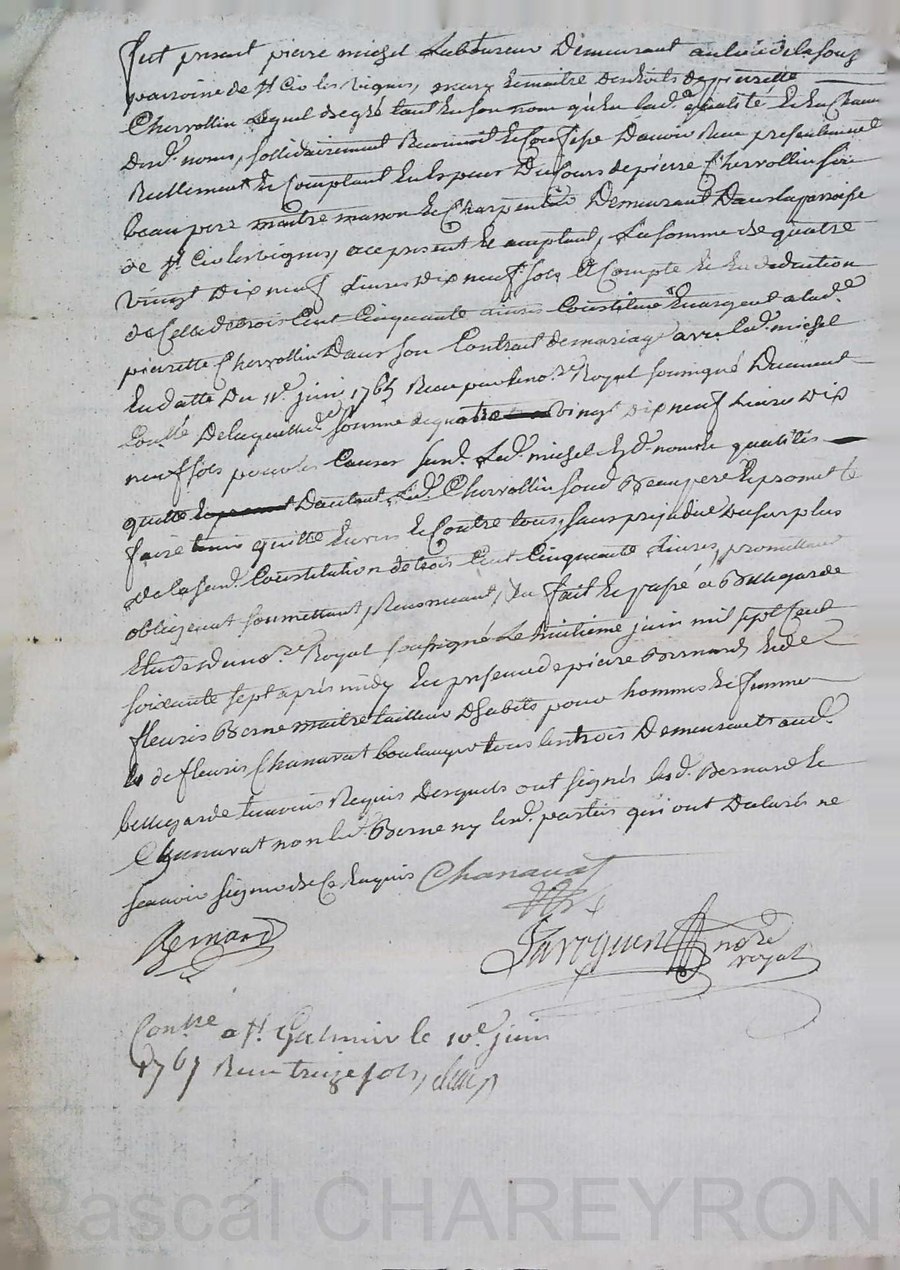 fut present pierre michel Laboureur Demeurant au lieu de la fouz
parroisse de St Cir les vignes, mary et maitre des droits de pierrette
Chervollin Lequel de gré tant en son nom qu'en lad.e qualité et en chacun
desd. noms, sollidairement Reconnoit et Confesse D'avoir Reçu presentement
Reellement et Comptant en Especes Du Cours de pierre Chervollin son
beau pere maitre masson et Charpentier Demeurant Dans la parroisse
de St Cir les vignes, ace present et acceptant, La somme de quatre
vingt Dix neuf Livres Dix neuf sols a Compte et en deduction
de Celle de trois Cent Cinquante Livres Constituée en argent a lad.e
pierrette Chervollin Dans son Contrat de mariage avec led. michel
En datte Du 11e juin 1765 Reçu par le no.re Royal soussigné Duement
Conllé De laquelle d. somme de quatre vingt Dix neuf Livres Dix
neuf sols pour les Causes susd. Led. michel esd. noms et qualités
quitte Dautant Led. Chervollin sond. Beau pere et promet le
faire tenir quitte Envers et Contre tous, sans prejudice Du surplus
de la susd. Constitution de trois Cent Cinquante Livres, promettant
obligeant soumettant, Renonceant, &a fait et passé a Bellegarde
Etude du no.re Royal soussigné Le huitieme juin mil sept cent
soixante sept après midy En presence de pierre Bernard, et de
fleuris Berne maitre tailleur D'habits pour hommes et femmes
et de fleuris Chanavat boulanger tous les trois Demeurants aud.
bellegarde temoins Requis Desquels ont signés lesd. Bernard et
Chanavat non led. Berne ny lesd. parties qui ont Declarés ne
scavoir signer de ce Enquis Chanavat
Bernard
no.re
royal
Conllé a St Galmier le 10e juin
1767 Reçu treize sols
Pascal CHAREYRON